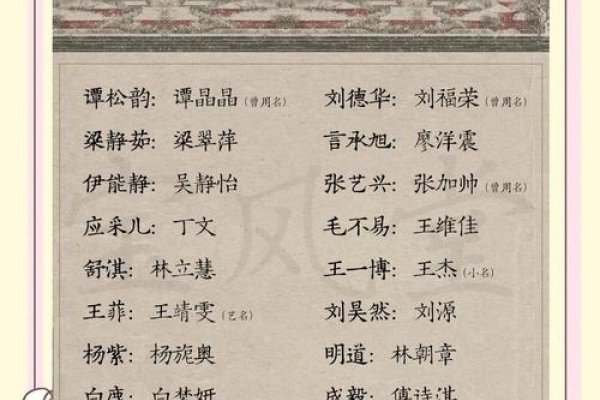 谭松韵：谭晶晶（曾用名） 刘德华：刘福荣（曾用名）
梁静茹：梁翠萍 言承旭：廖洋震
伊能静：吴静怡 张艺兴：张加帅（曾用名）
应采儿：丁文 毛不易：王维佳
舒淇：林立慧 王一博：王杰（小名）
王菲：王靖雯（艺名） 刘昊然：刘源
杨紫：杨旎奥 明道：林朝章
白鹿：白梦妍 成毅：傅诗淇